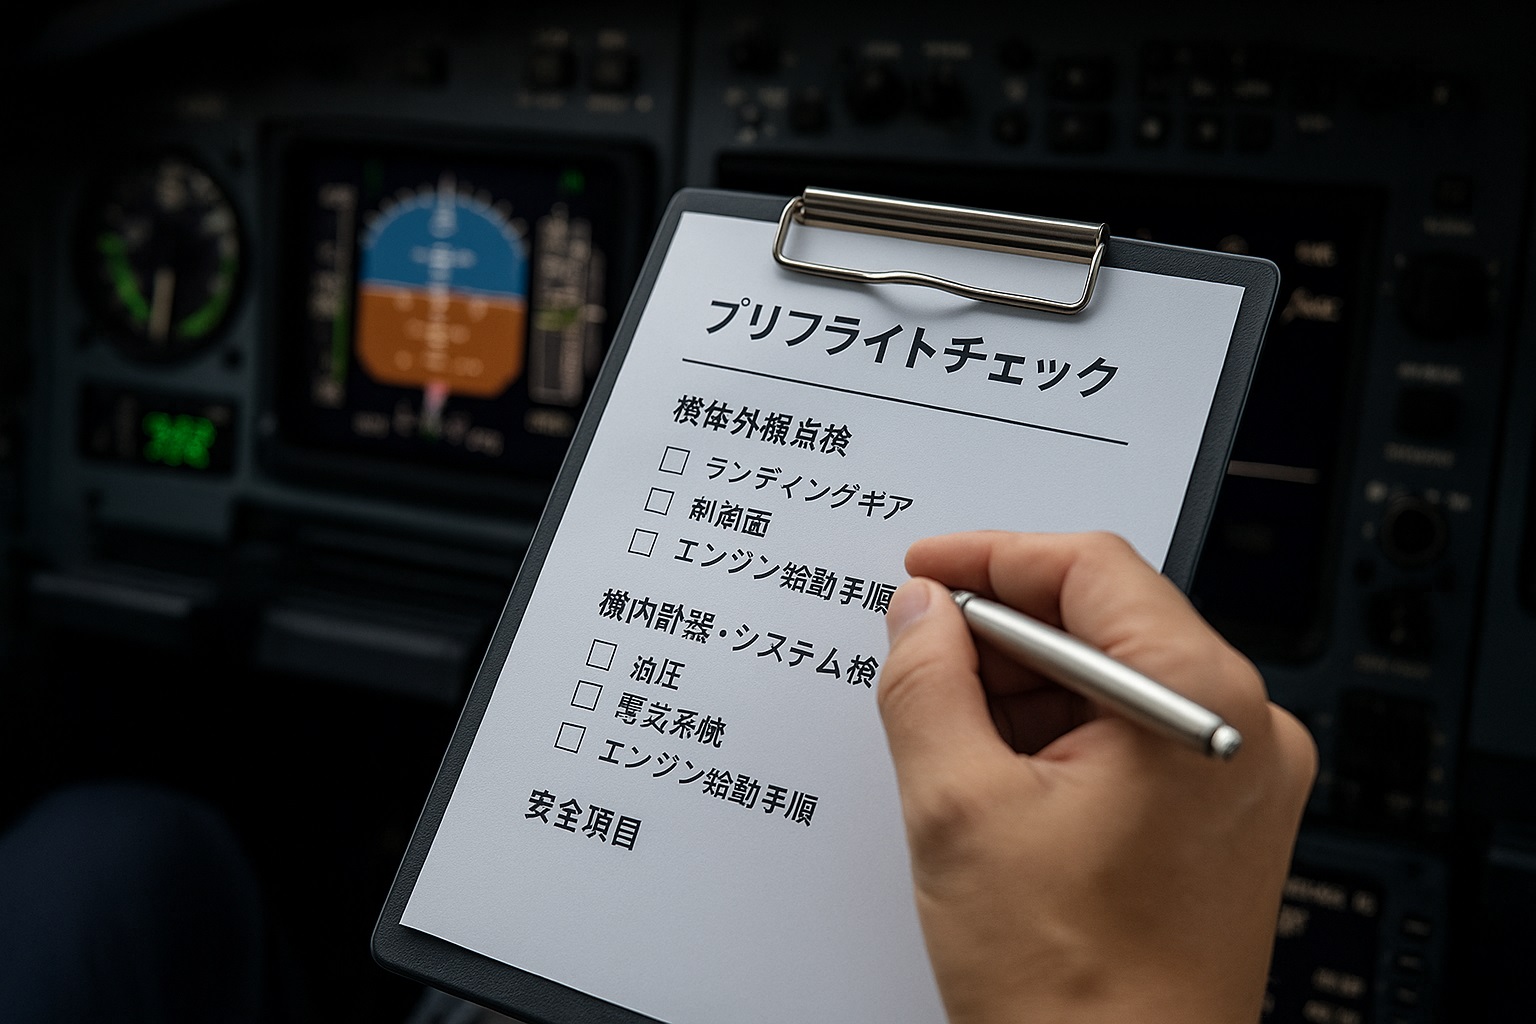 プリフライトチェック
機体外 点検
□ ランディングギア
□ 面
□ エンジン始動手順
機内計器・システム検
□ 油圧
□ 系
□ エンジン始動手順
安全項目